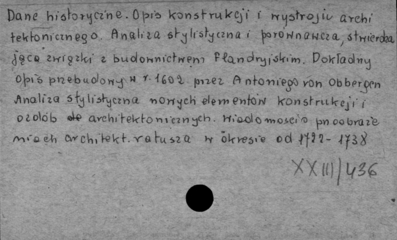 Dane historyczne. Opis konstrukcji i wystroju archi
tektonicznego. Analiza stylistyczna i porównawcza, stwierdza
jąca związki z budownictwem Flandryjskim. Dokładny
opis przebudowy w r. 1602 przez Antoniego von Obbergen
Analiza stylistyczna nowych elementów konstrukcji i
ozdób architektonicznych. Wiadomości o przeobraże
niach architekt. ratusza w okresie od 1722-1738
XXIII/436